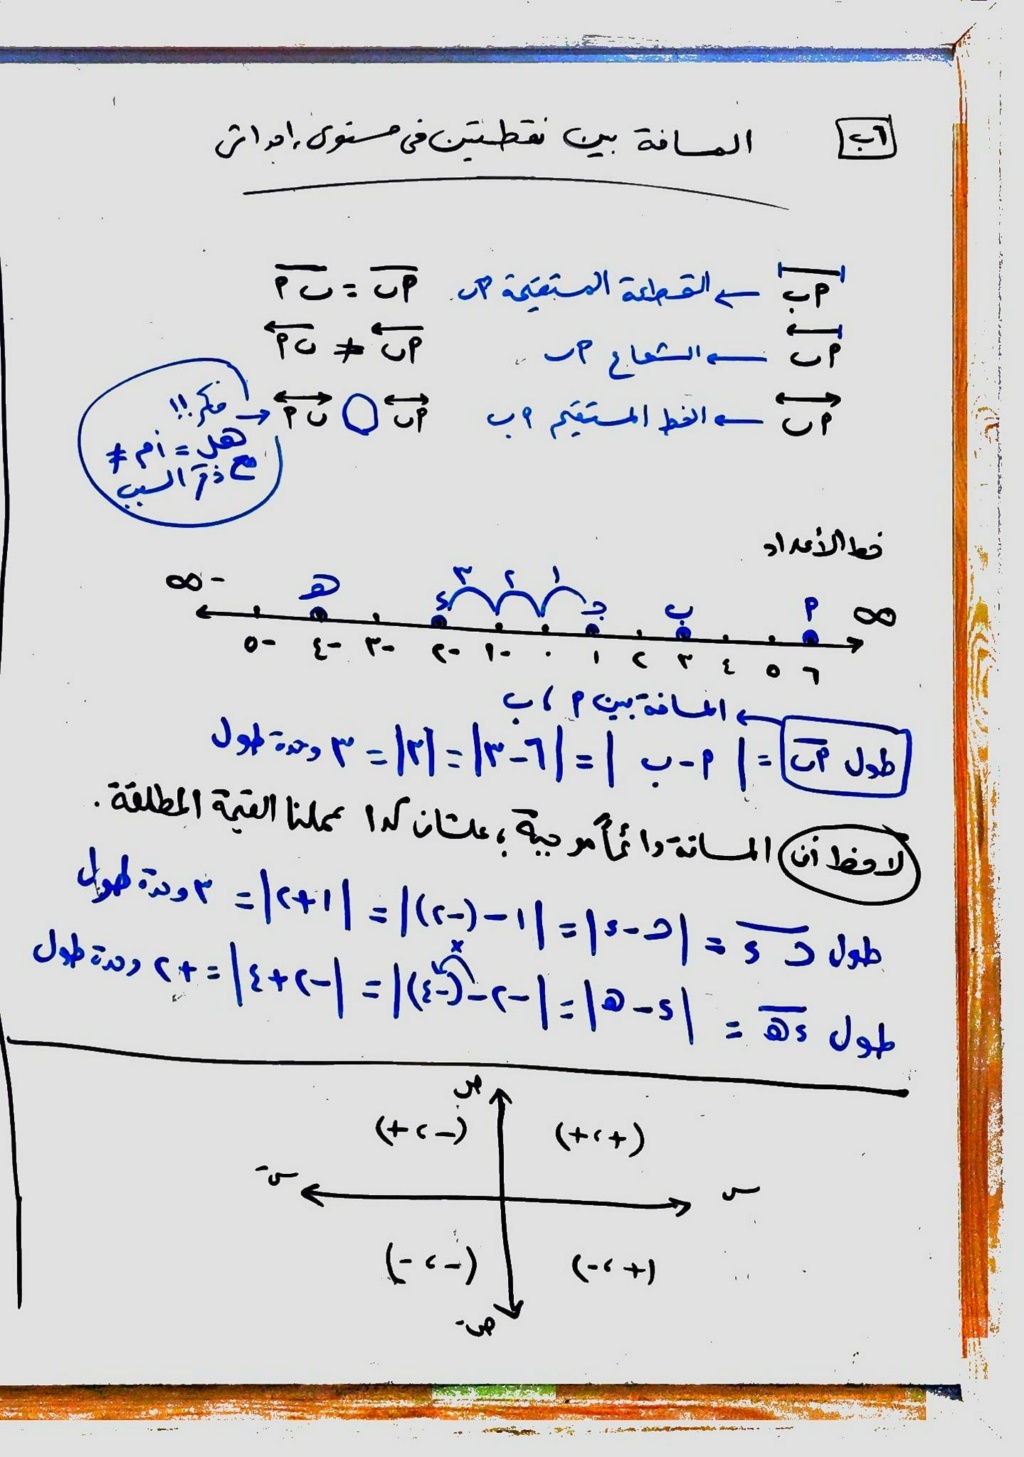 ٦ب المسافة بين نقطتين في مستوى إحداثي
أب ← القطعة المستقيمة أب. أب = ب أ
أب ← الشعاع أب. أب ≠ ب أ
أب ← الخط المستقيم أب أب ◯ ب أ
فكر!!
هل = أم ≠
مع ذكر السبب
خط الأعداد
∞ أ ب جـ ١ ٢ ٣ د هـ -∞
-٥ -٤ -٣ -٢ -١ ٠ ١ ٢ ٣ ٤ ٥ ٦
المسافة بين أ ، ب
طول أب = | أ - ب | = |٦-٣| = |٣| = ٣ وحدة طول
لاحظ أن المسافة دائماً موجبة ، علشان كدا عملنا القيمة المطلقة.
طول جـ د = |جـ - د| = |١-(-٢)| = |١+٢| = ٣ وحدة طول
×
طول د هـ = |د - هـ| = |-٢-(-٤)| = |-٢+٤| = +٢ وحدة طول
ص
(+،+) (-،+)
س -س
(+،-) (-،-)
-ص